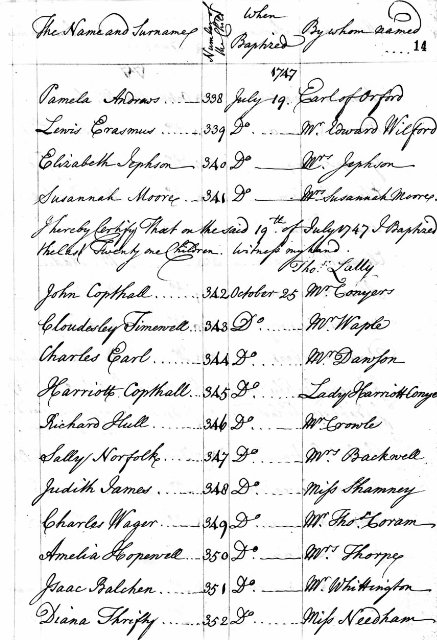 The Name and Surname Number of the Child When Baptized By whom named
14
1747
Pamela Andrews 338 July 19. Earl of Orford
Lewis Erasmus 339 Do Mr. Edward Wilford
Elizabeth Jephson 340 Do Mrs Jephson
Susannah Moore 341 Do Mrs Susannah Moore
I hereby Certify That on the said 19th of July 1747 I Baptized
the last Twenty one Children. Witness my hand.
Thos. Lally
John Copthall 342 October 25 Mr Conyers
Cloudesley Timewell 343 Do Mr Waple
Charles Earl 344 Do Mr Dawson
Harriott Copthall 345 Do Lady Harriott
Richard Hull 346 Do Mr Crowle
Sally Norfolk 347 Do Mrs Backwell
Judith James 348 Do Miss Shamney
Charles Wager 349 Do Mr Thos. Coram
Amelia Hopewell 350 Do Mrs Thorpe
Isaac Balchen 351 Do Mr Whittington
Diana Thrifty 352 Do Miss Needham